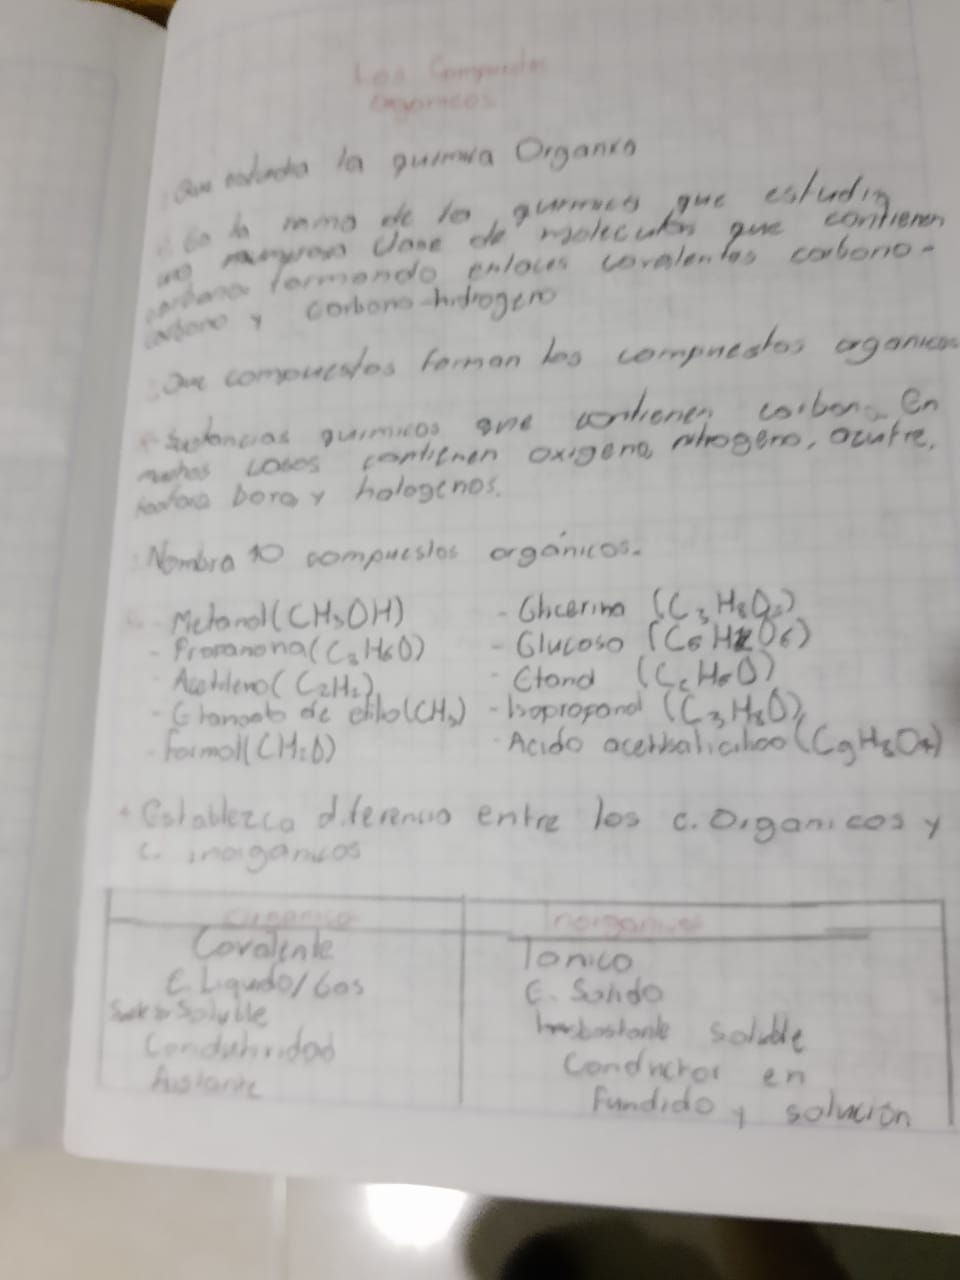 Los Compuestos
Organicos
Que estudia la quimica Organica
Es la rama de la quimica que estudia
una numerosa clase de moleculas que contienen
carbono formando enlaces covalentes carbono-
carbono y carbono-hidrogeno
Que compuestos forman los compuestos organicos
Sustancias quimicas que contienen carbono, En
muchos casos contienen oxigeno, nitrogeno, azufre,
fosforo boro y halogenos.
Nombra 10 compuestos orgánicos.
- Metanol (CH3OH)
- Propanona (C3H6O)
- Acetileno (C2H2)
- Etanoato de etilo (CH3)
- Formol (CH2O)
- Glicerina (C3H8O3)
- Glucosa (C6H12O6)
- Etanol (C2H6O)
- Isopropanol (C3H8O)
- Acido acetilsalicilico (C9H8O4)
Establezca diferencia entre los c. Organicos y
c. inorgánicos
Organico
Covalente
E. Liquido/Gas
Soluble
Conductividad
Aislante
Inorganico
Ionico
E. Solido
bastante soluble
Conductor en
fundido y solución